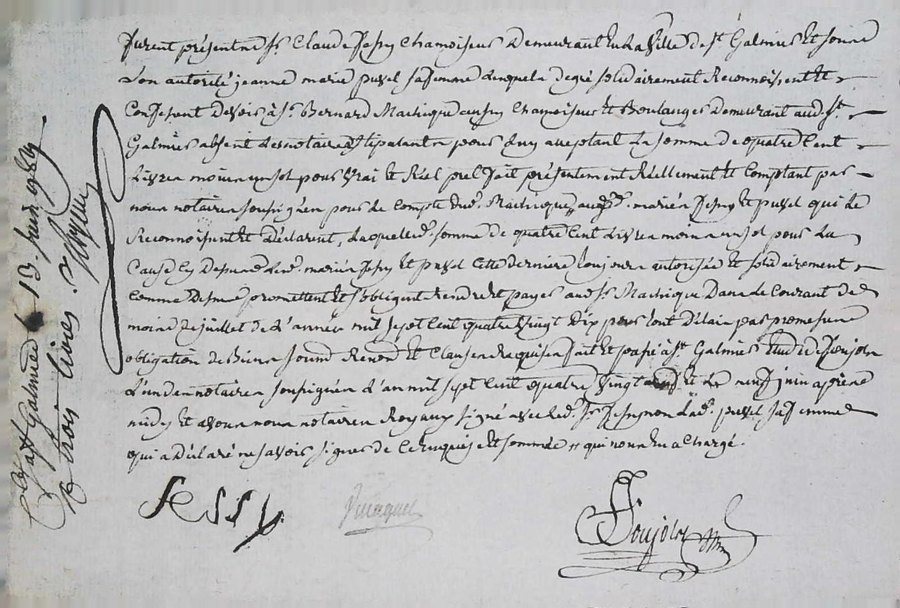 furent présents sr. Claude fessy Chamoiseur Demeurant en la ville de st. Galmier et sous
son autorité jeanne marie puvel sa femme Lesquels de gré solidairement Reconnoissent et
Confessent Devoir à sr. Bernard Marcique aussy Chamoiseur et Boulanger Demeurant aud. st.
Galmier absent les notaires stipulants pour Luy acceptant La somme de quatre Cent
Livres moins un sol pour vrai et Réel prel fait présentement Réellement et Comptant par
nous notaires soussignés pour le Compte dud. Marcique auxd. mariés fessy et puvel qui le
Reconnoissent et Déclarent, Laquelle d. somme de quatre Cent Livres moins un sol pour La
Cause Cy Dessus Lesd. mariés fessy et puvel Cette derniere toujours autorisée et solidairement
Comme Dessus promettent et s'obligent rendre et payer aud. sr. Marcique Dans le Courant de
mois de juillet de L'année mil sept Cent quatre vingt dix pour tout Délai par promesse
obligation de Biens soumd. Renond. et Clauses Requises fait et passé à st. Galmier Etude de
L'un des notaires soussignés L'an mil sept Cent quatre vingt et Le neuf juin après
midy et avons nous notaires Royaux signé avec led. sr. fessy non Lad. puvel sa femme
qui a déclaré ne savoir signer de Ce Enquise et sommée
fessy
st. Galmier 13 juin 1789
trois livres